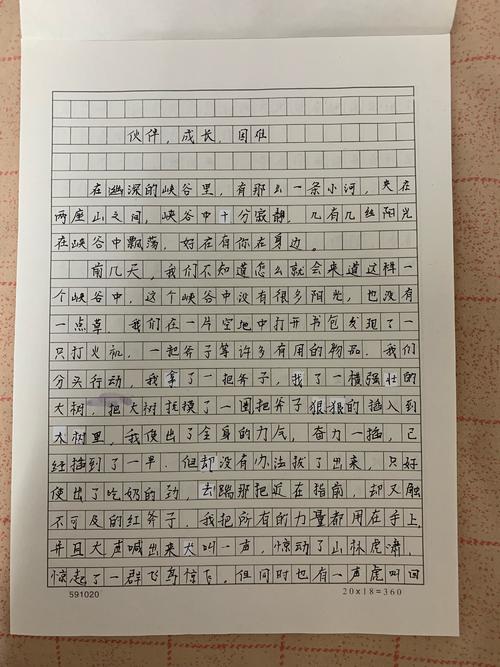 伙伴,成长,困难
在幽深的峡谷里,有那么一条小河,夹在
两座山之间,峡谷中十分寂静,几有几丝阳光
在峡谷中飘荡,好在有你在身边。
前几天,我们不知道怎么就会来道这样一
个峡谷中,这个峡谷中没有很多阳光,也没有
一点草 我们在一片空地中打开书包发现了一
只打火机,一起斧子等许多有用的物品.我们
分头行动,我拿了一把斧子,找了一横强壮的
大树,把大树抚摸了一圈把斧子狠狠的插入到
大树里,我使出了全身的力气,奋力一插,已
经插到了一半.但却没有办法拔了出来,只好
使出了吃奶的劲,去踹那把近在指前,却又触
不可及的红斧子.我把所有的力量都用在手上,
并且大声喊出来大叫一声,惊动了山林虎潇,
惊起了一群飞鸟惊飞。但同时也有一声虎叫回
591020
20×18=360